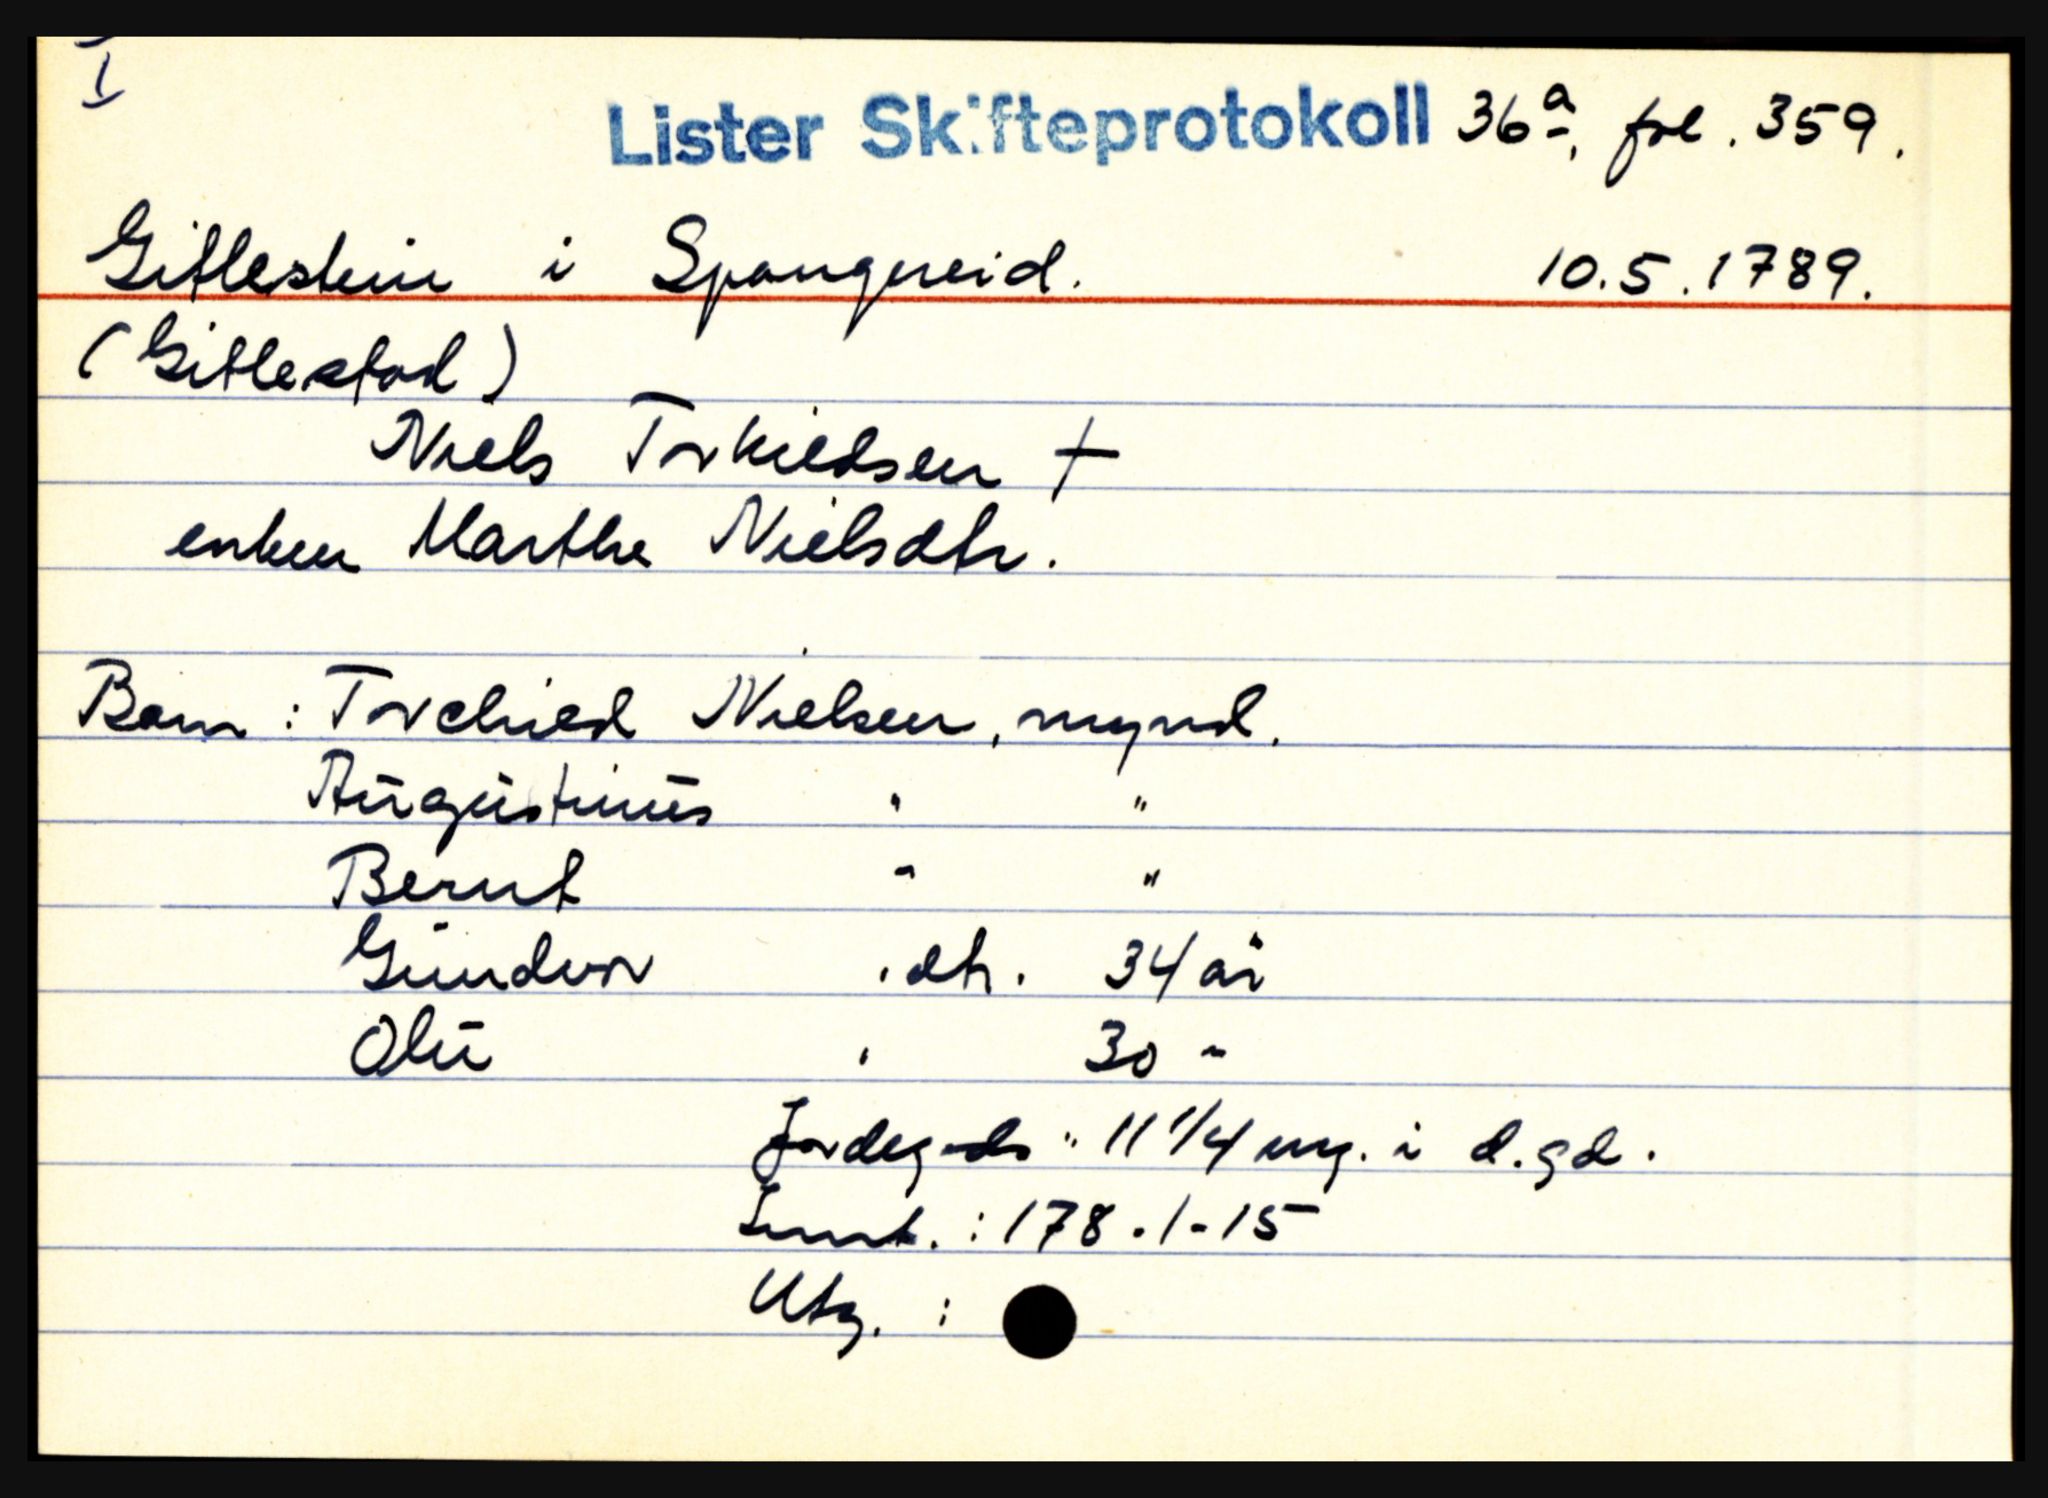 I
Lister Skifteprotokoll 36a, fol. 359.
Gitlestein i Spangereid. 10.5.1789.
(Gitlestad)
Niels Torkieldsen †
enken Marthe Nielsdtr.
Barn : Torchield Nielsen, mynd.
Augustinus " "
Bernt " "
Gundvor . dtr. 34 år
Olu . 30 "
Jordegods : 11 1/4 mg. i d.gd.
Innt. : 178-1-15
Utg. :